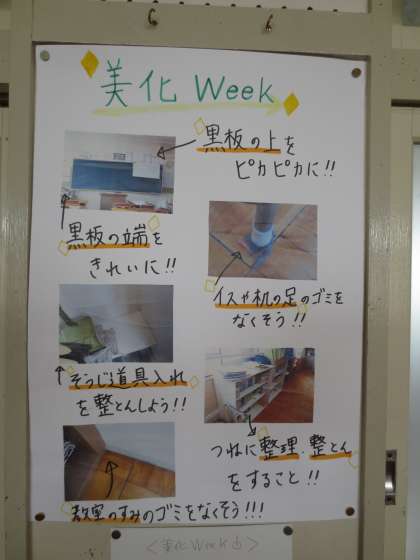 美化 Week
黒板の上を
ピカピカに!!
黒板の端を
きれいに!!
イスや机の足のゴミを
なくそう!!
そうじ道具入れ
を整とんしよう!!
つねに整理.整とん
をすること!!
教室のすみのゴミをなくそう!!!
<美化Week